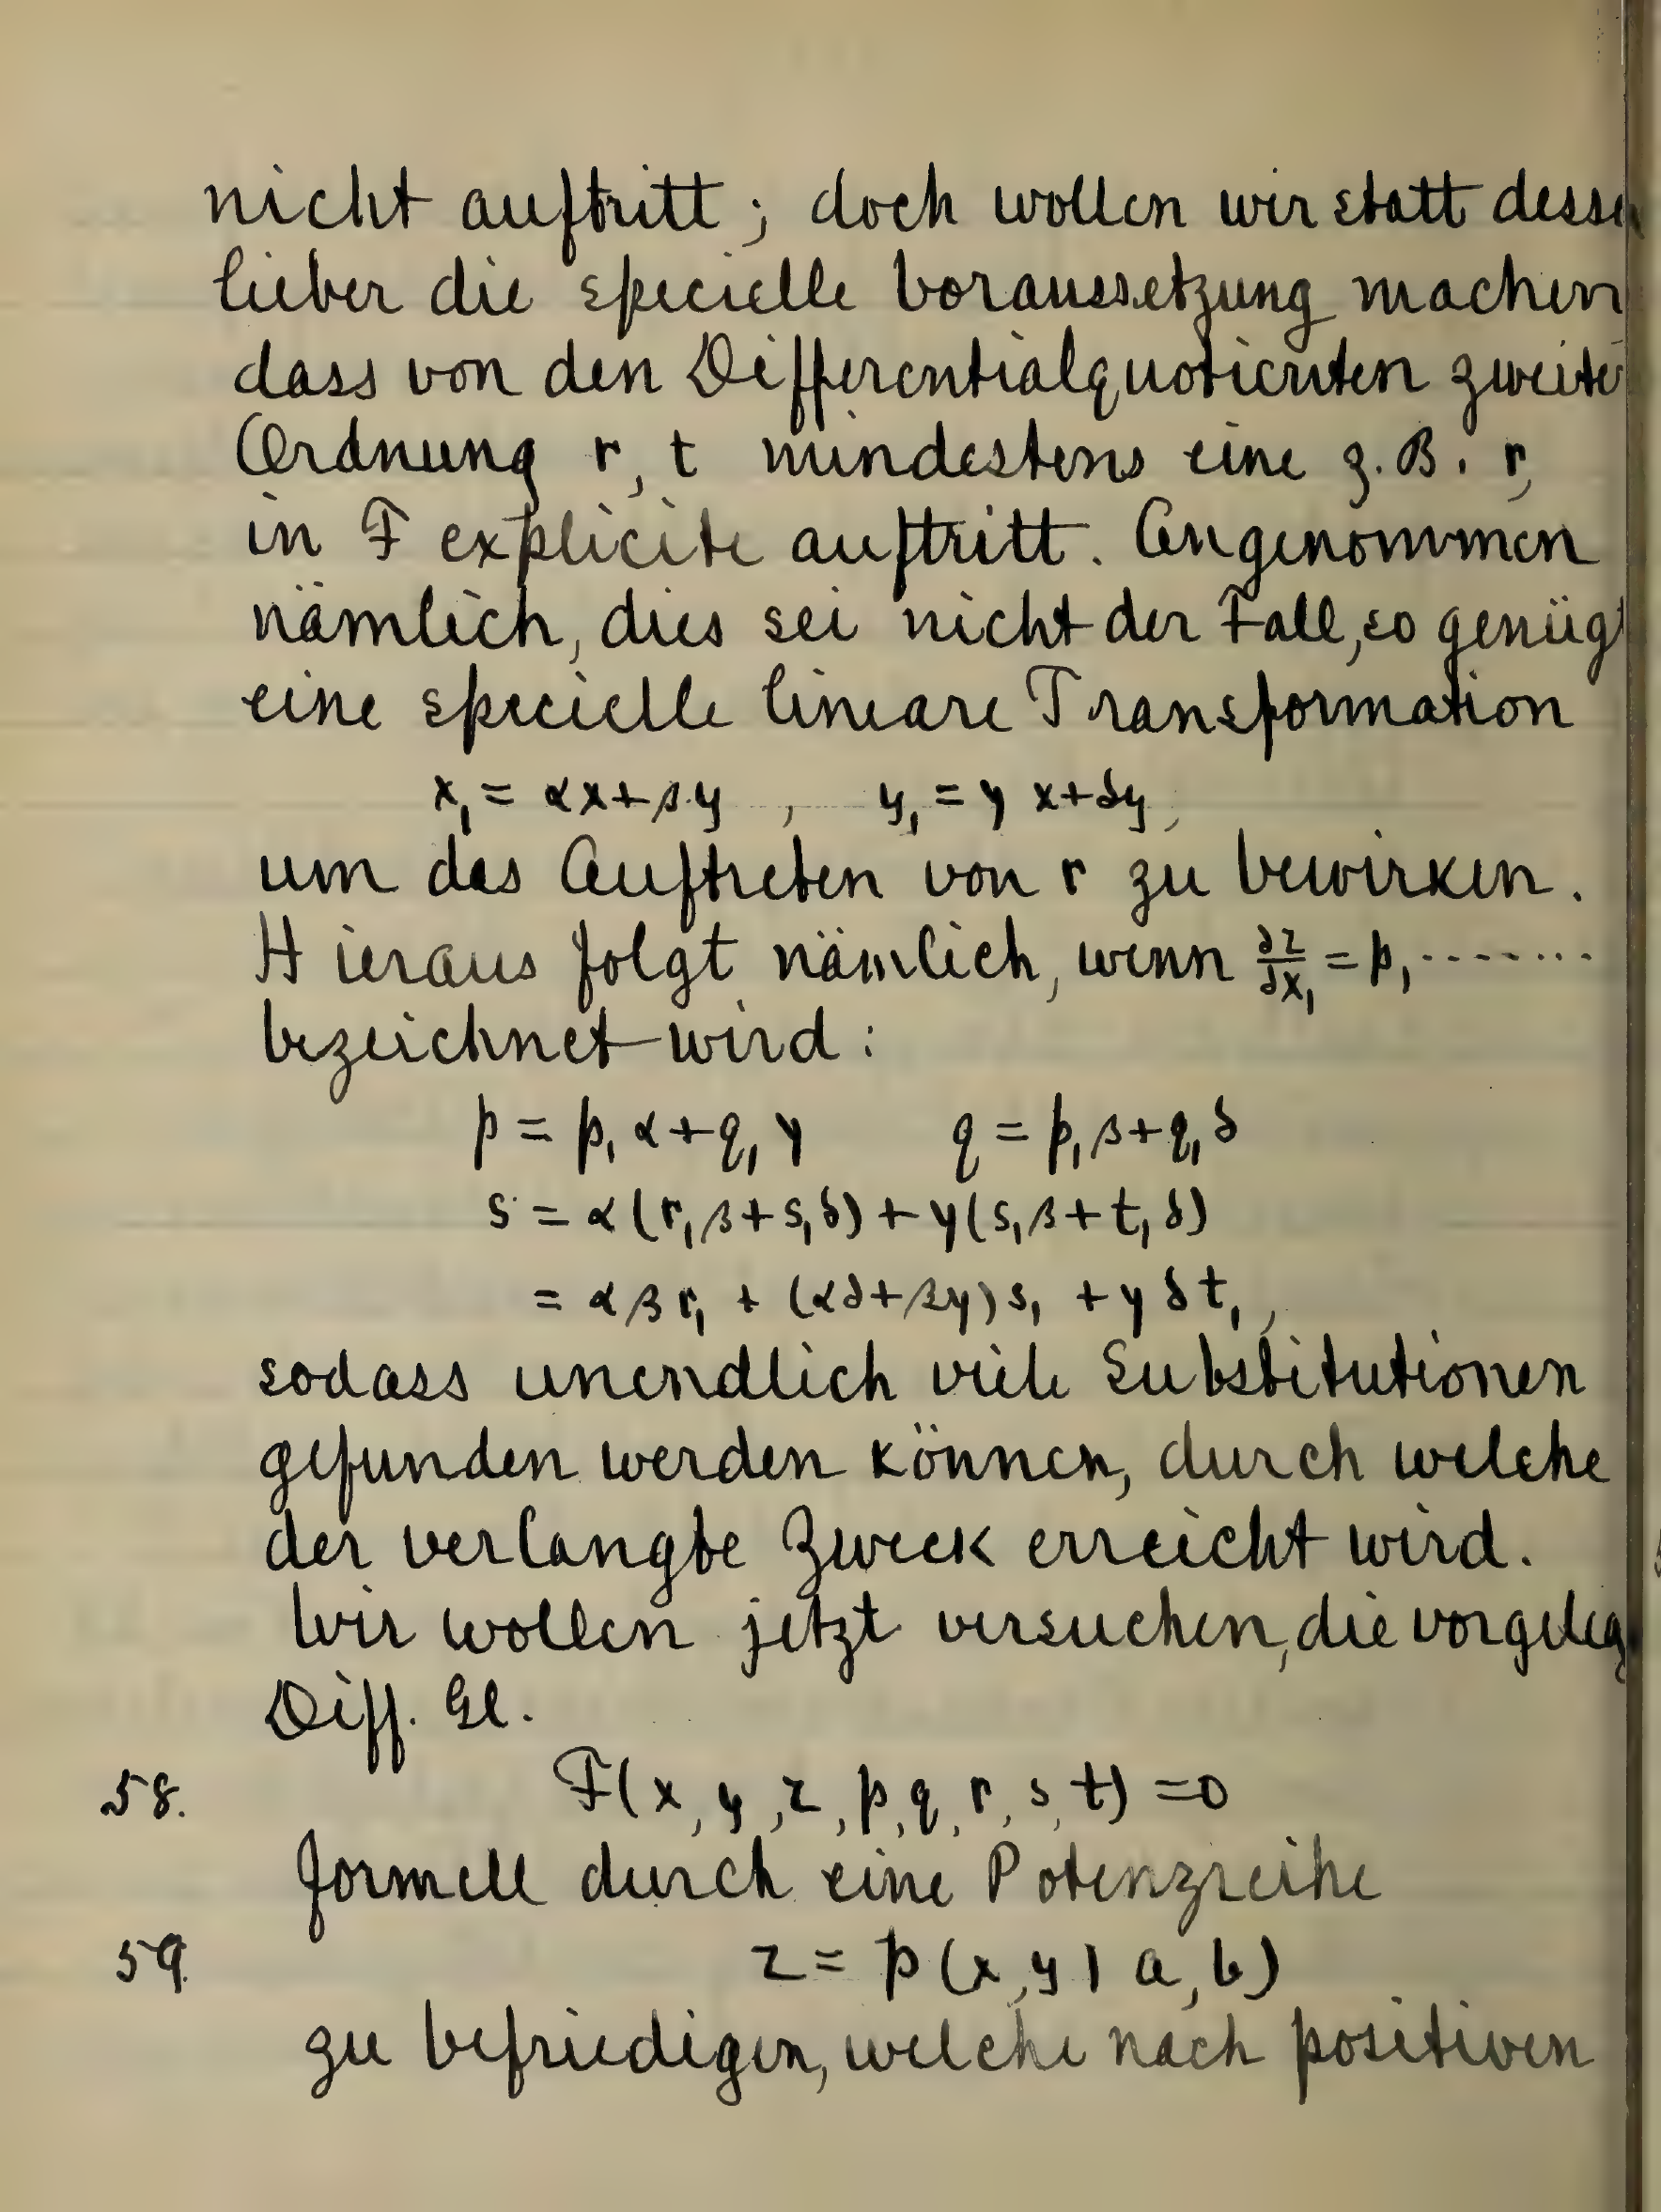 nicht auftritt; doch wollen wir statt desse
lieber die specielle Voraussetzung machen
dass von den Differentialquotienten zweite
Ordnung r, t mindestens eine z.B. r,
in F explicite auftritt. Angenommen
nämlich, dies sei nicht der Fall, so genügt
eine specielle lineare Transformation
x₁ = αx+βy , y₁ = γx+δy,
um das Auftreten von r zu bewirken.
Hieraus folgt nämlich, wenn ∂z/∂x₁ = p₁ ........
bezeichnet wird:
p = p₁α+q₁γ q = p₁β+q₁δ
s = α(r₁β+s₁δ)+γ(s₁β+t₁δ)
= αβr₁ + (αδ+βγ)s₁ + γδt₁,
sodass unendlich viele Substitutionen
gefunden werden können, durch welche
der verlangte Zweck erreicht wird.
Wir wollen jetzt versuchen, die vorgeleg
Diff. Gl.
58. F(x, y, z, p, q, r, s, t) = 0
formell durch eine Potenzreihe
59. z = p(x, y | a, b)
zu befriedigen, welche nach positiven